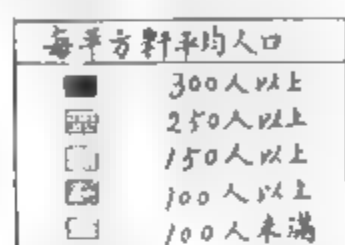 每平方粁平均人口
300人以上
250人以上
150人以上
100人以上
100人未満